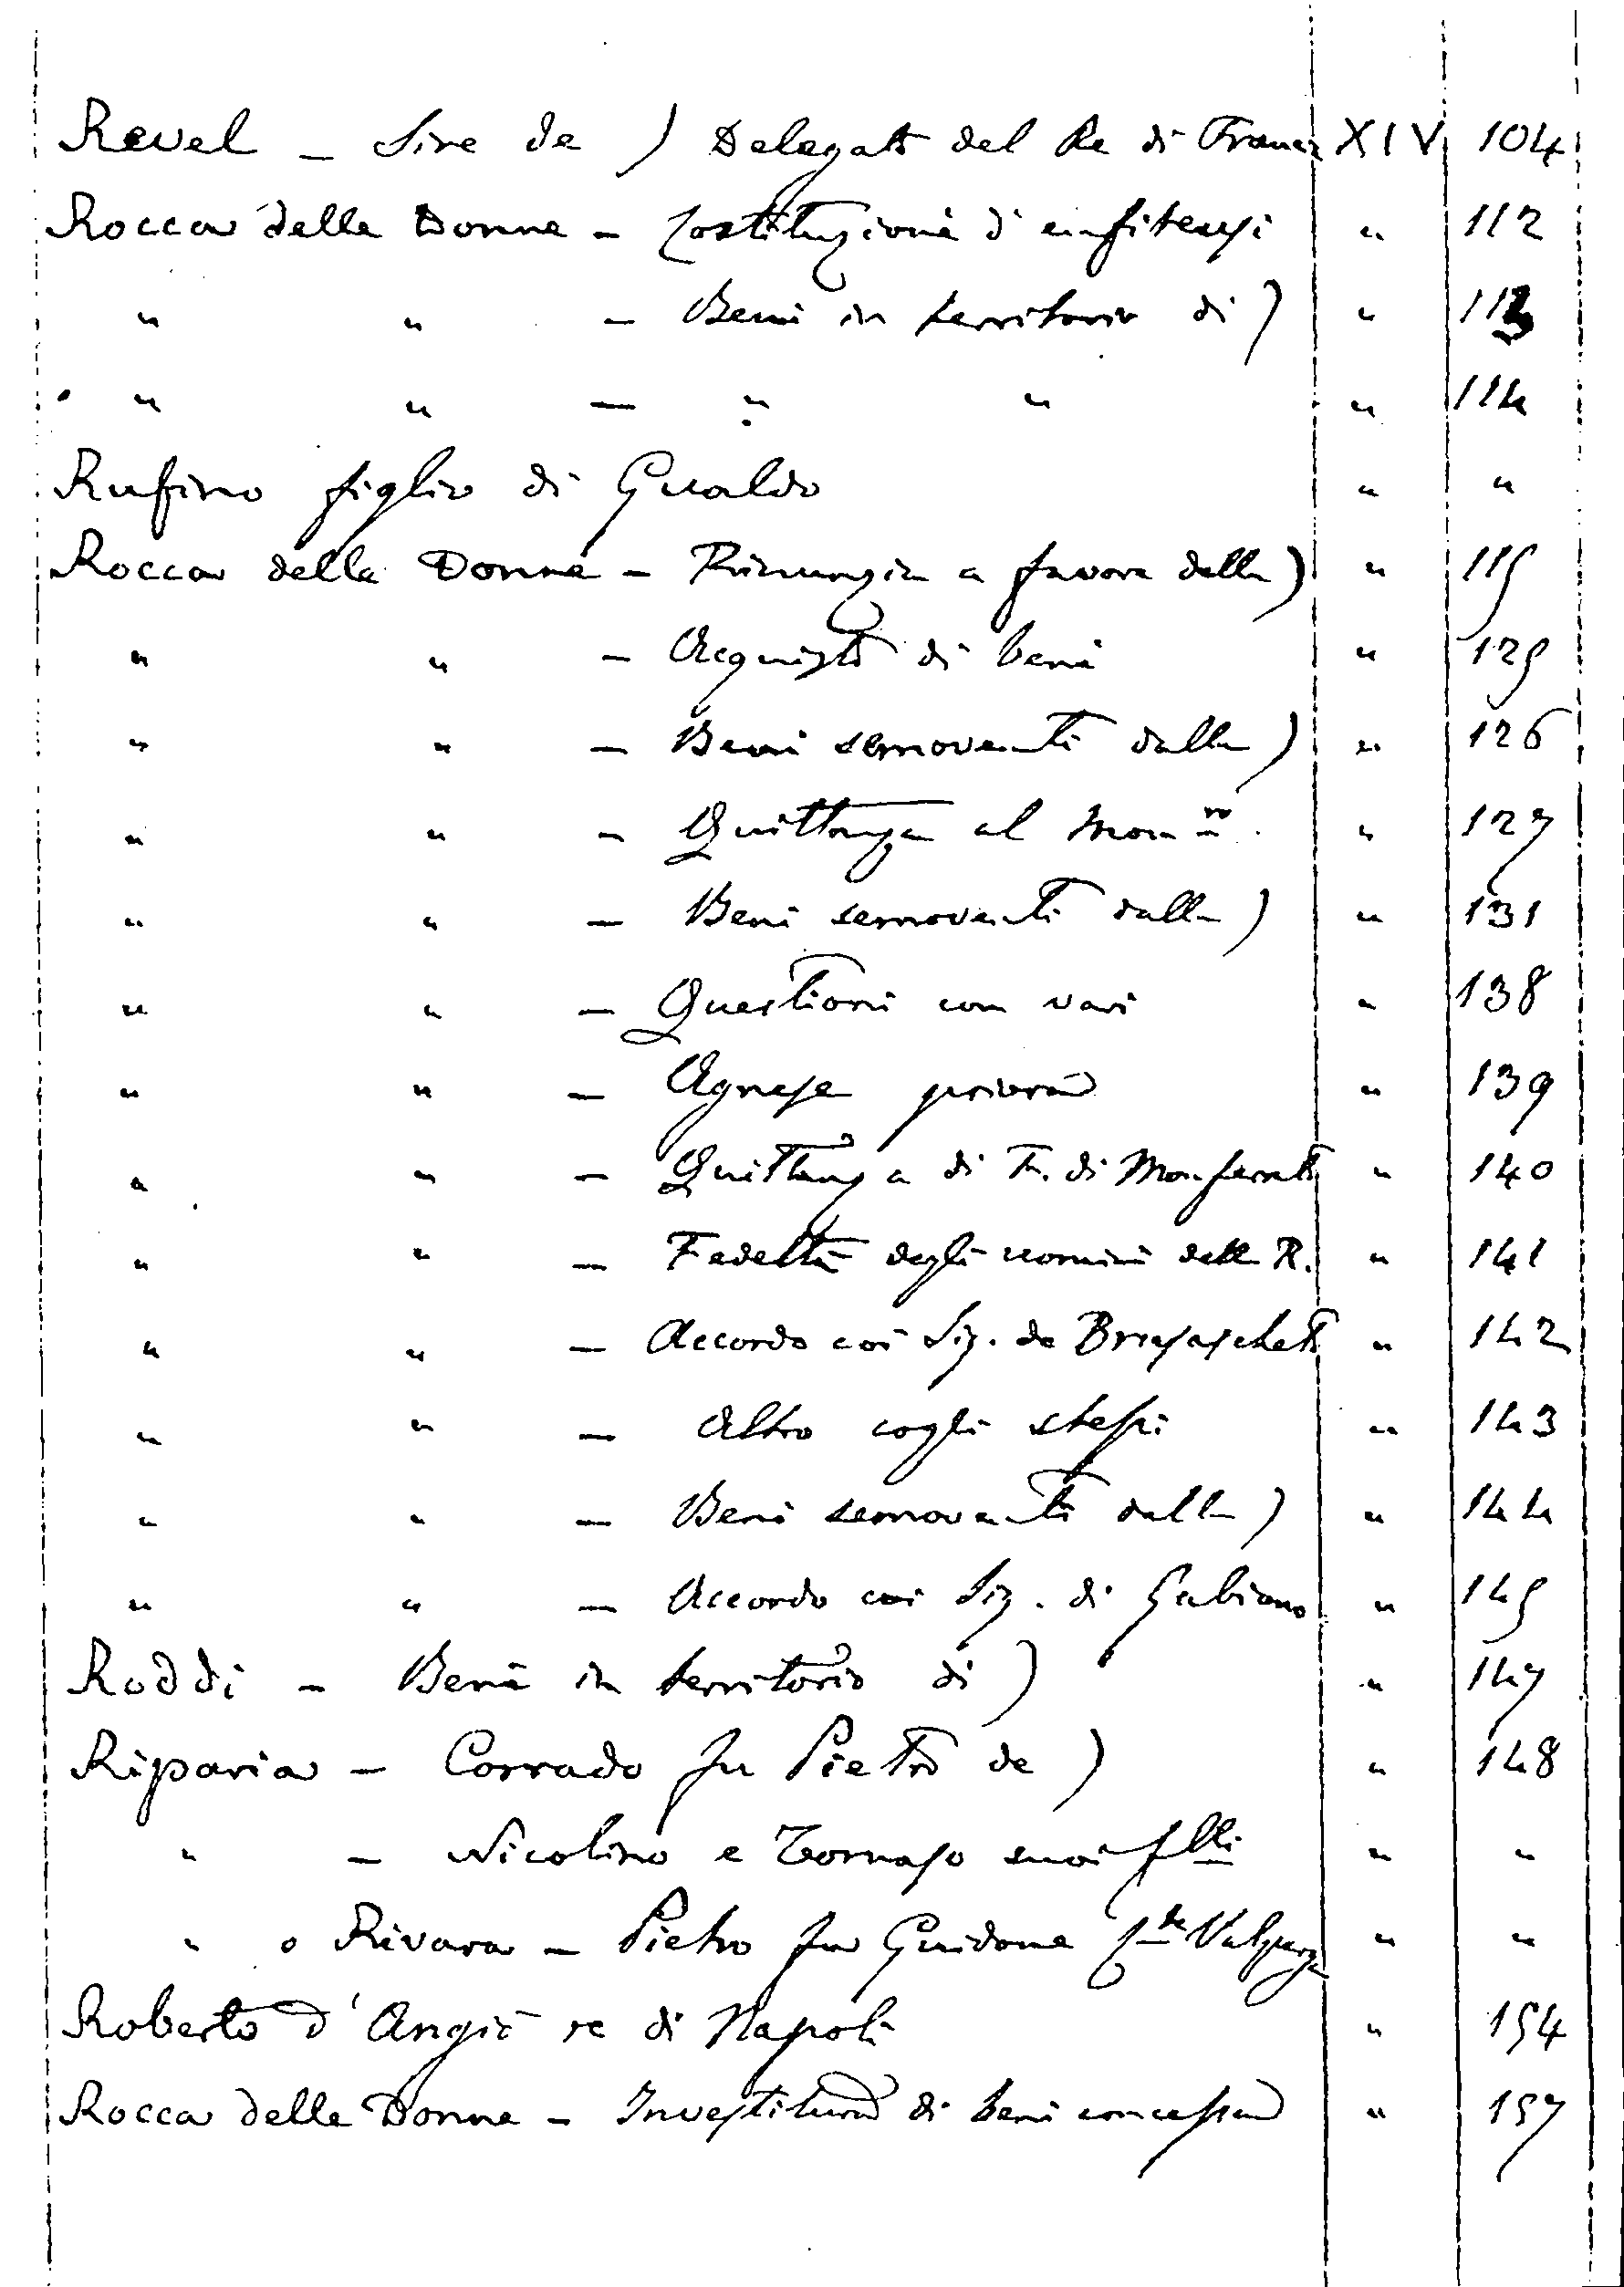 Revel - Sire de ) Delegato del Re di Francia XIV 104
Rocca delle Donne - Costituzione d'enfiteusi " 112
" " - Beni in territorio di ) " 113
" " - " " " 114
Rufino figlio di Gualdo " "
Rocca delle Donne - Rinunzia a favore della ) " 115
" " - Acquisto di beni " 125
" " - Beni semoventi dalla ) " 126
" " - Quittanza al Mon.ro " 127
" " - Beni semoventi dalla ) " 131
" " - Questioni con vari " 138
" " - Agnese priora " 139
" " - Quittanza di F. di Monferrato " 140
" " - Fedeltà degli uomini della R. " 141
" " - Accordo coi Sig. de " 142
" " - Altro cogli stessi " 143
" " - Beni semoventi dalla ) " 144
" " - Accordo coi Sig. di Gabiano " 145
Roddi - Beni in territorio di ) " 147
Riparia - Corrado fu Pietro de ) " 148
" - Nicolino e Tomaso suoi flli " "
" o Rivara - Pietro fu Guidone Cte Valperga " "
Roberto d'Angiò re di Napoli " 154
Rocca delle Donne - Investitura di beni concessa " 157